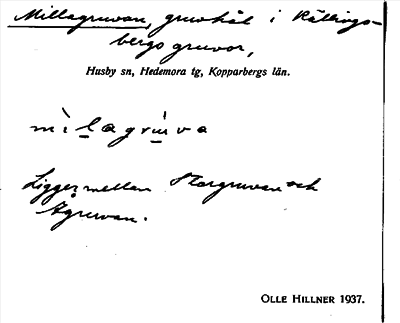 Millagruvan, gruvhål i Källings-
bergs gruvor,
Husby sn, Hedemora tg, Kopparbergs län.
mìlagrùva
Ligger mellan Storgruvan och
Ågruvan.
OLLE HILLNER 1937.